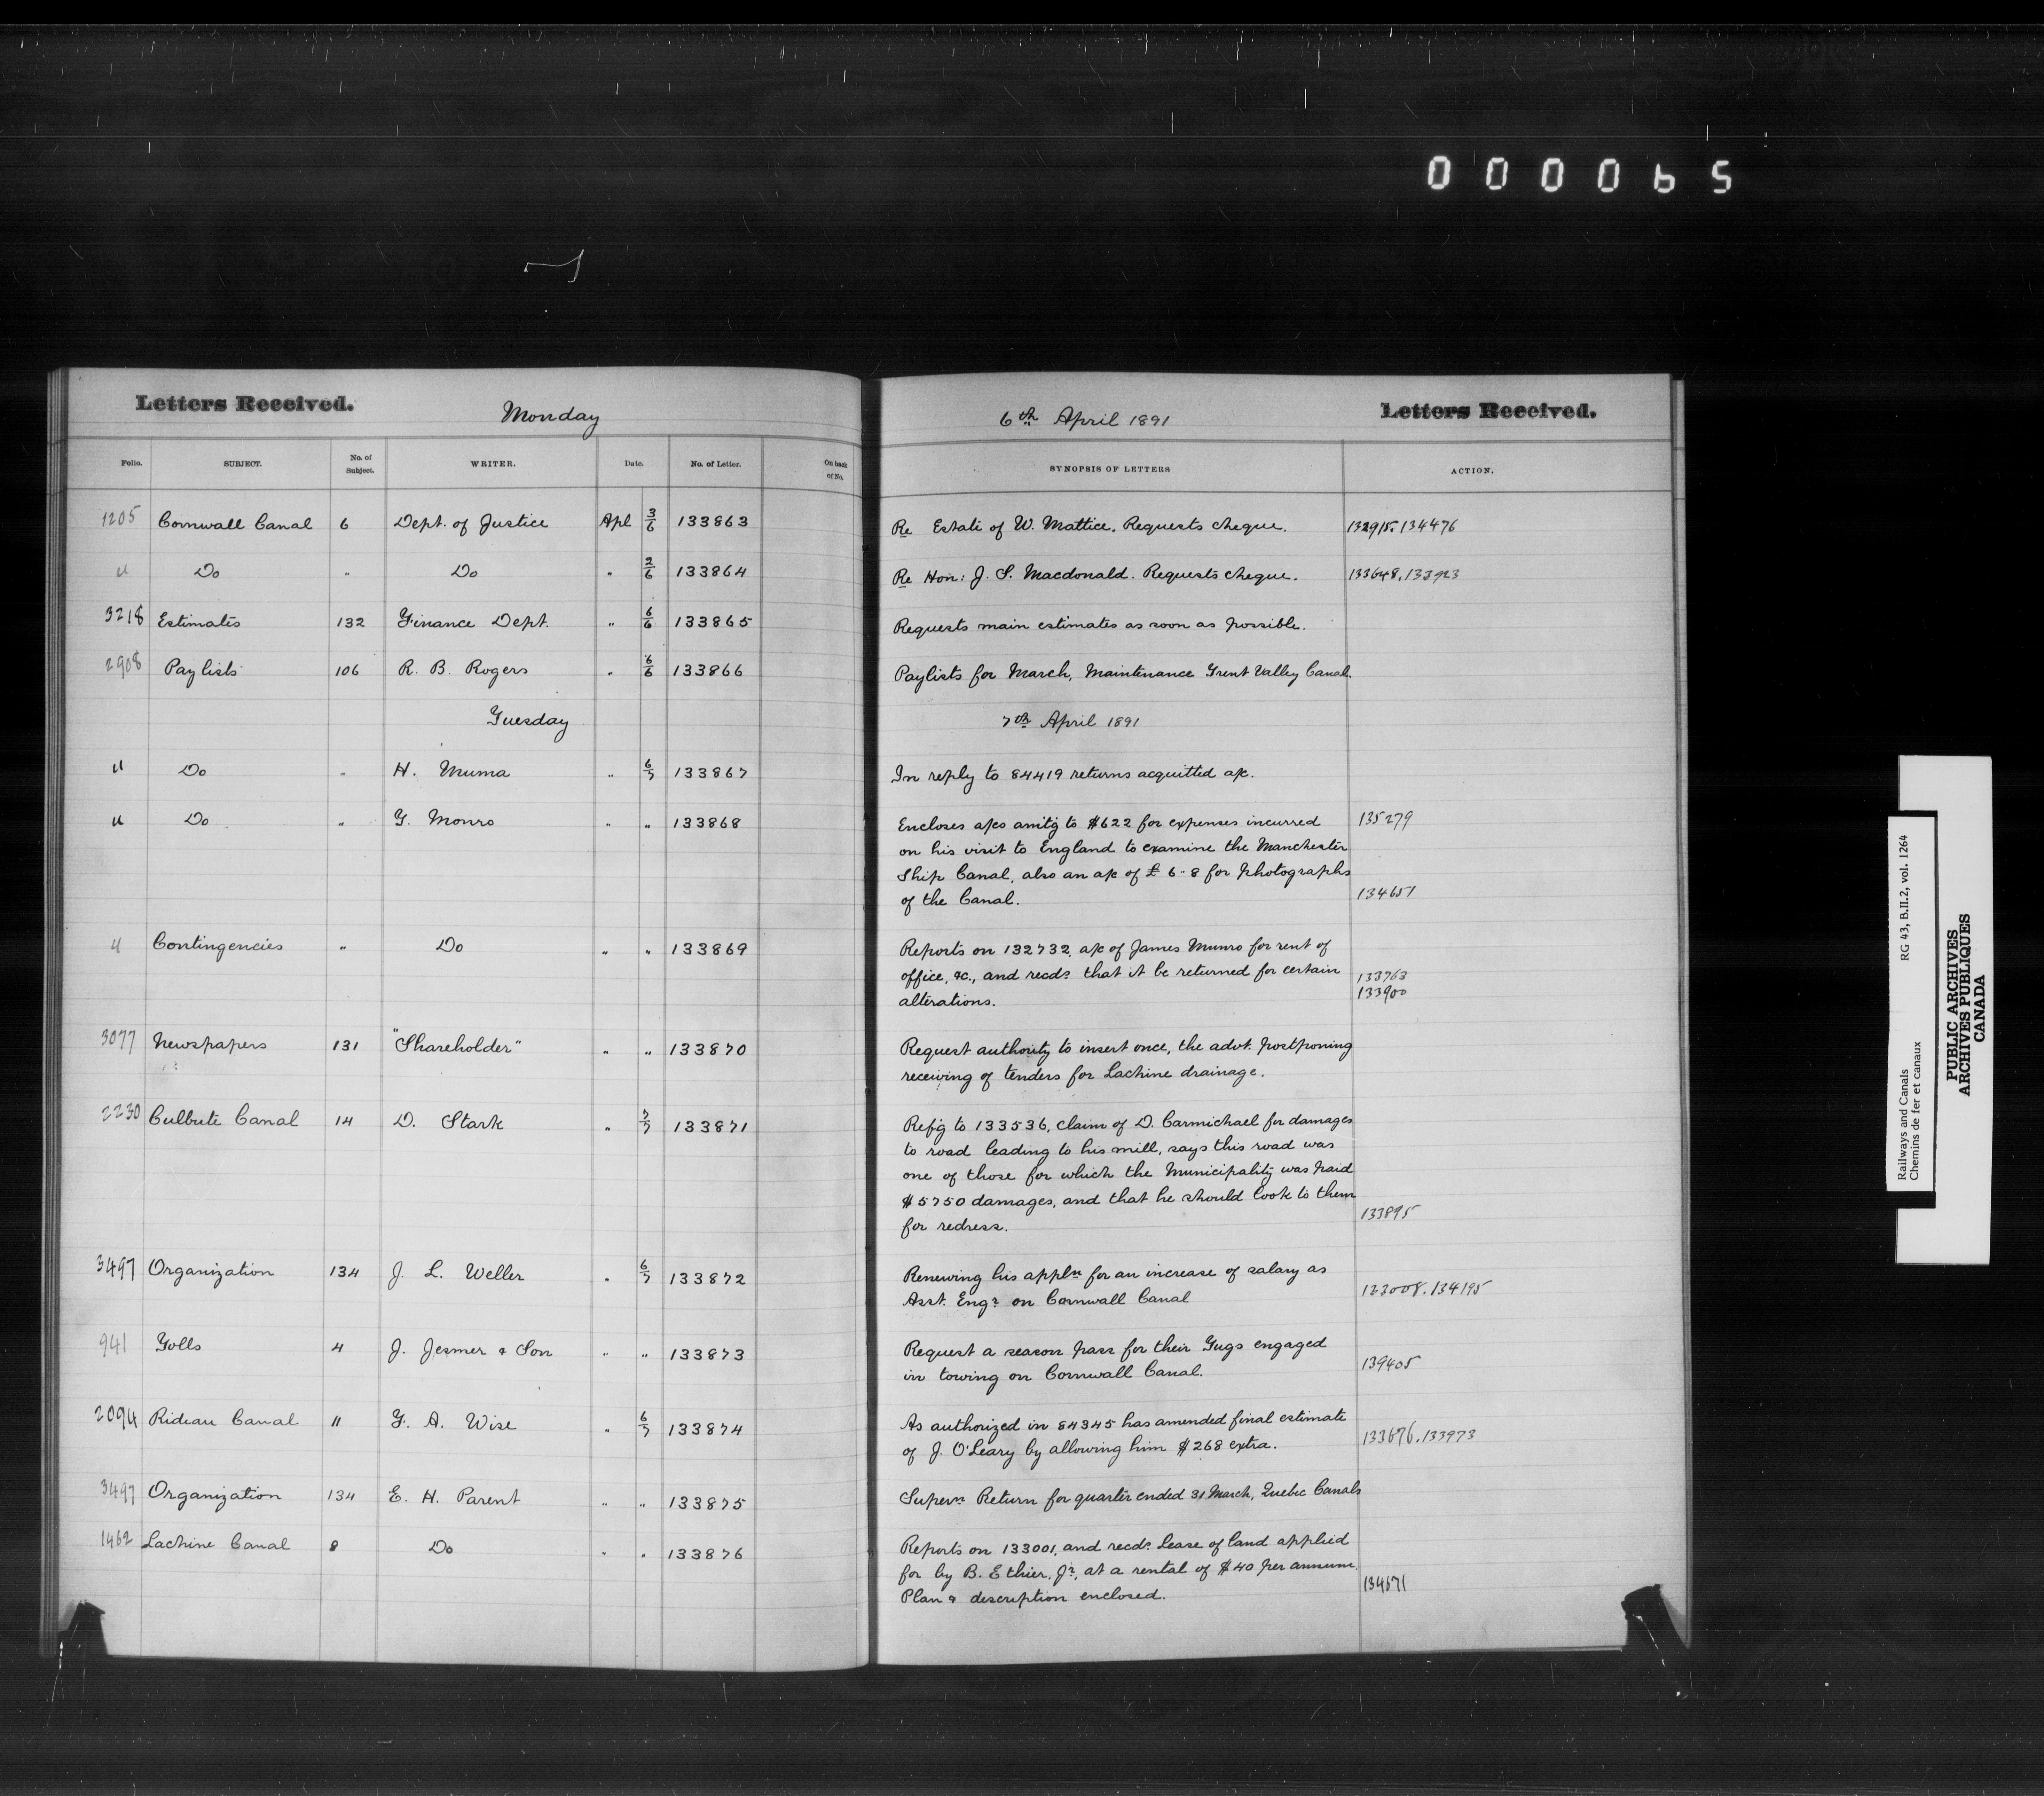 000065
Letters Received.
Monday
6th April 1891
Letters Received.
Folio. SUBJECT. No. of Subject. WRITER. Date. No. of Letter. On back of No. SYNOPSIS OF LETTERS ACTION.
1205 Cornwall Canal 6 Dept. of Justice Apl 3/6 133863 Re Estate of W. Mattice. Requests cheque. 132915. 134476
" Do " Do " 2/6 133864 Re Hon: J. S. Macdonald. Requests cheque. 133648,
3218 Estimates 132 Finance Dept. " 6/6 133865 Requests main estimates as soon as possible.
2908 Paylists 106 R. B. Rogers " 6/6 133866 Paylists for March, Maintenance Trent Valley Canal.
Tuesday 7th April 1891
" Do " H. Muma " 6/7 133867 In reply to 84419 returns acquitted a/c.
" Do " T. Monro " " 133868 Encloses a/cs amtg to $622 for expenses incurred 135279
on his visit to England to examine the Manchester
Ship Canal, also an a/c of £ 6-8 for photographs
of the Canal. 134651
" Contingencies " Do " " 133869 Reports on 132732, a/c of James Munro for rent of
office, &c., and recds. that it be returned for certain 133763
alterations. 133900
3077 Newspapers 131 "Shareholder" " " 133870 Request authority to insert once, the advt. postponing
receiving of tenders for Lachine drainage.
2230 Culbute Canal 14 D. Stark " 7/7 133871 Refg to 133536, claim of D. Carmichael for damages
to road leading to his mill, says this road was
one of those for which the Municipality was paid
$5750 damages, and that he should look to them
for redress. 133895
3497 Organization 134 J. L. Weller " 6/7 133872 Renewing his appln for an increase of salary as
Asst. Engr. on Cornwall Canal 123008. 134195
941 Tolls 4 J. Jesmer & Son " " 133873 Request a season pass for their Tugs engaged
in towing on Cornwall Canal. 139405
2094 Rideau Canal 11 F. A. Wise " 6/7 133874 As authorized in 84345 has amended final estimate
of J. O'Leary by allowing him $268 extra. 133676. 133973
3497 Organization 134 E. H. Parent " " 133875 Supern Return for quarter ended 31 March, Quebec Canals
1462 Lachine Canal 8 Do " " 133876 Reports on 133001, and recds. Lease of land applied
for by B. Ethier, Jr., at a rental of $40 per annum.
Plan & description enclosed. 134671
Railways and Canals RG 43, B.II.2, vol. 1264
Chemins de fer et canaux
PUBLIC ARCHIVES
ARCHIVES PUBLIQUES
CANADA